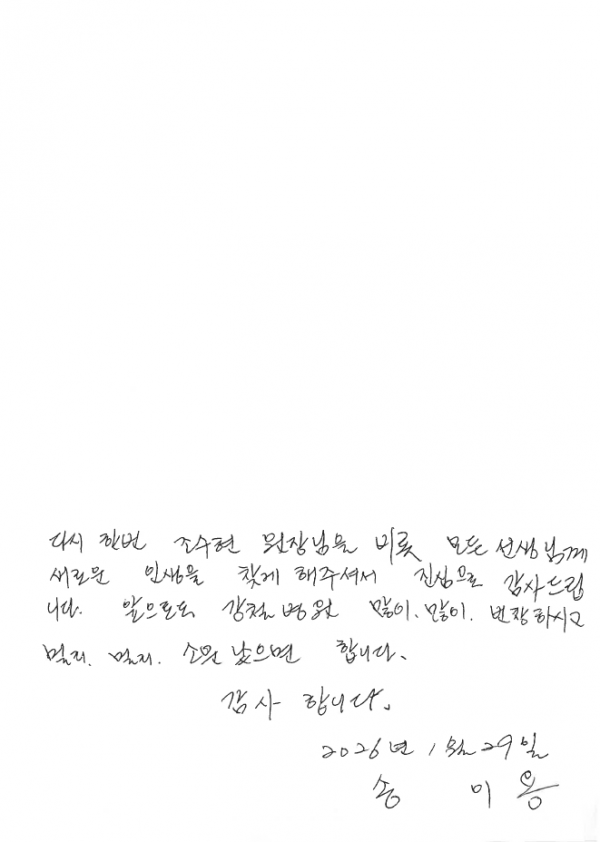 다시 한번 조수현 원장님을 비롯 모든 선생님께
새로운 인생을 찾게 해주셔서 진심으로 감사드립
니다. 앞으로도 강철병원 많이. 많이. 번창하시고
멀리. 멀리. 소문 났으면 합니다.
감사 합니다.
2026년 1월 29일
송 미 용